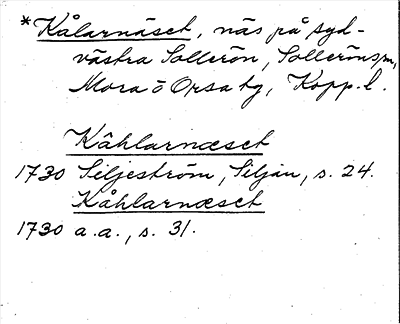 *Kålarnäset, näs på syd-
västra Sollerön, Solleröns sn,
Mora o Orsa tg, Kopp. l.
Kåhlarnæset
1730 Siljeström, Siljan, s. 24.
Kåhlarnæset
1730 a.a., s. 31.